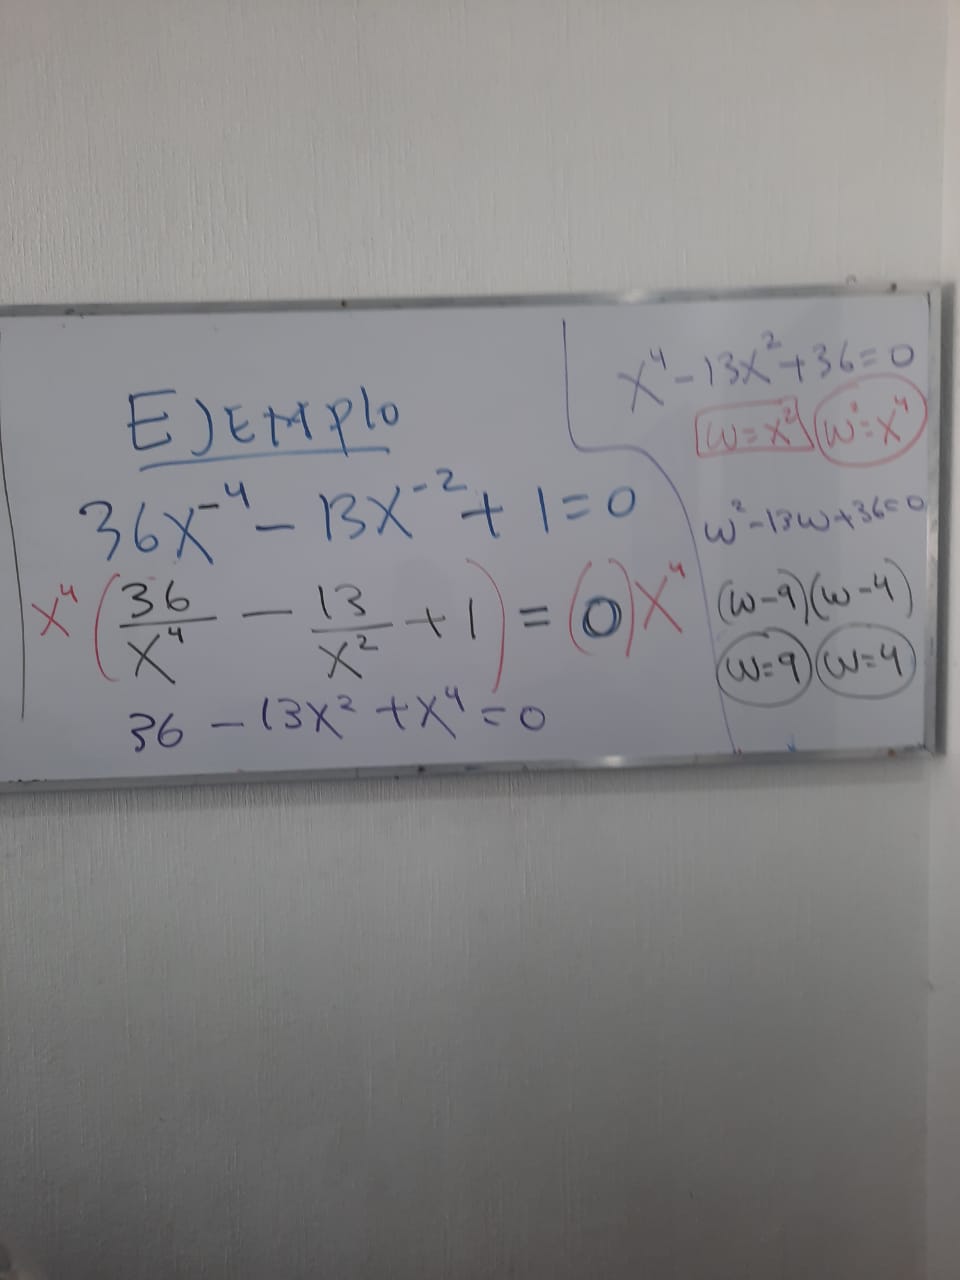 Ejemplo
36x⁻⁴ - 13x⁻² + 1 = 0
x⁴ (36/x⁴ - 13/x² + 1) = (0) x⁴
36 - 13x² + x⁴ = 0
x⁴ - 13x² + 36 = 0
w = x² w² = x⁴
w² - 13w + 36 = 0
(w-9)(w-4)
w=9 w=4